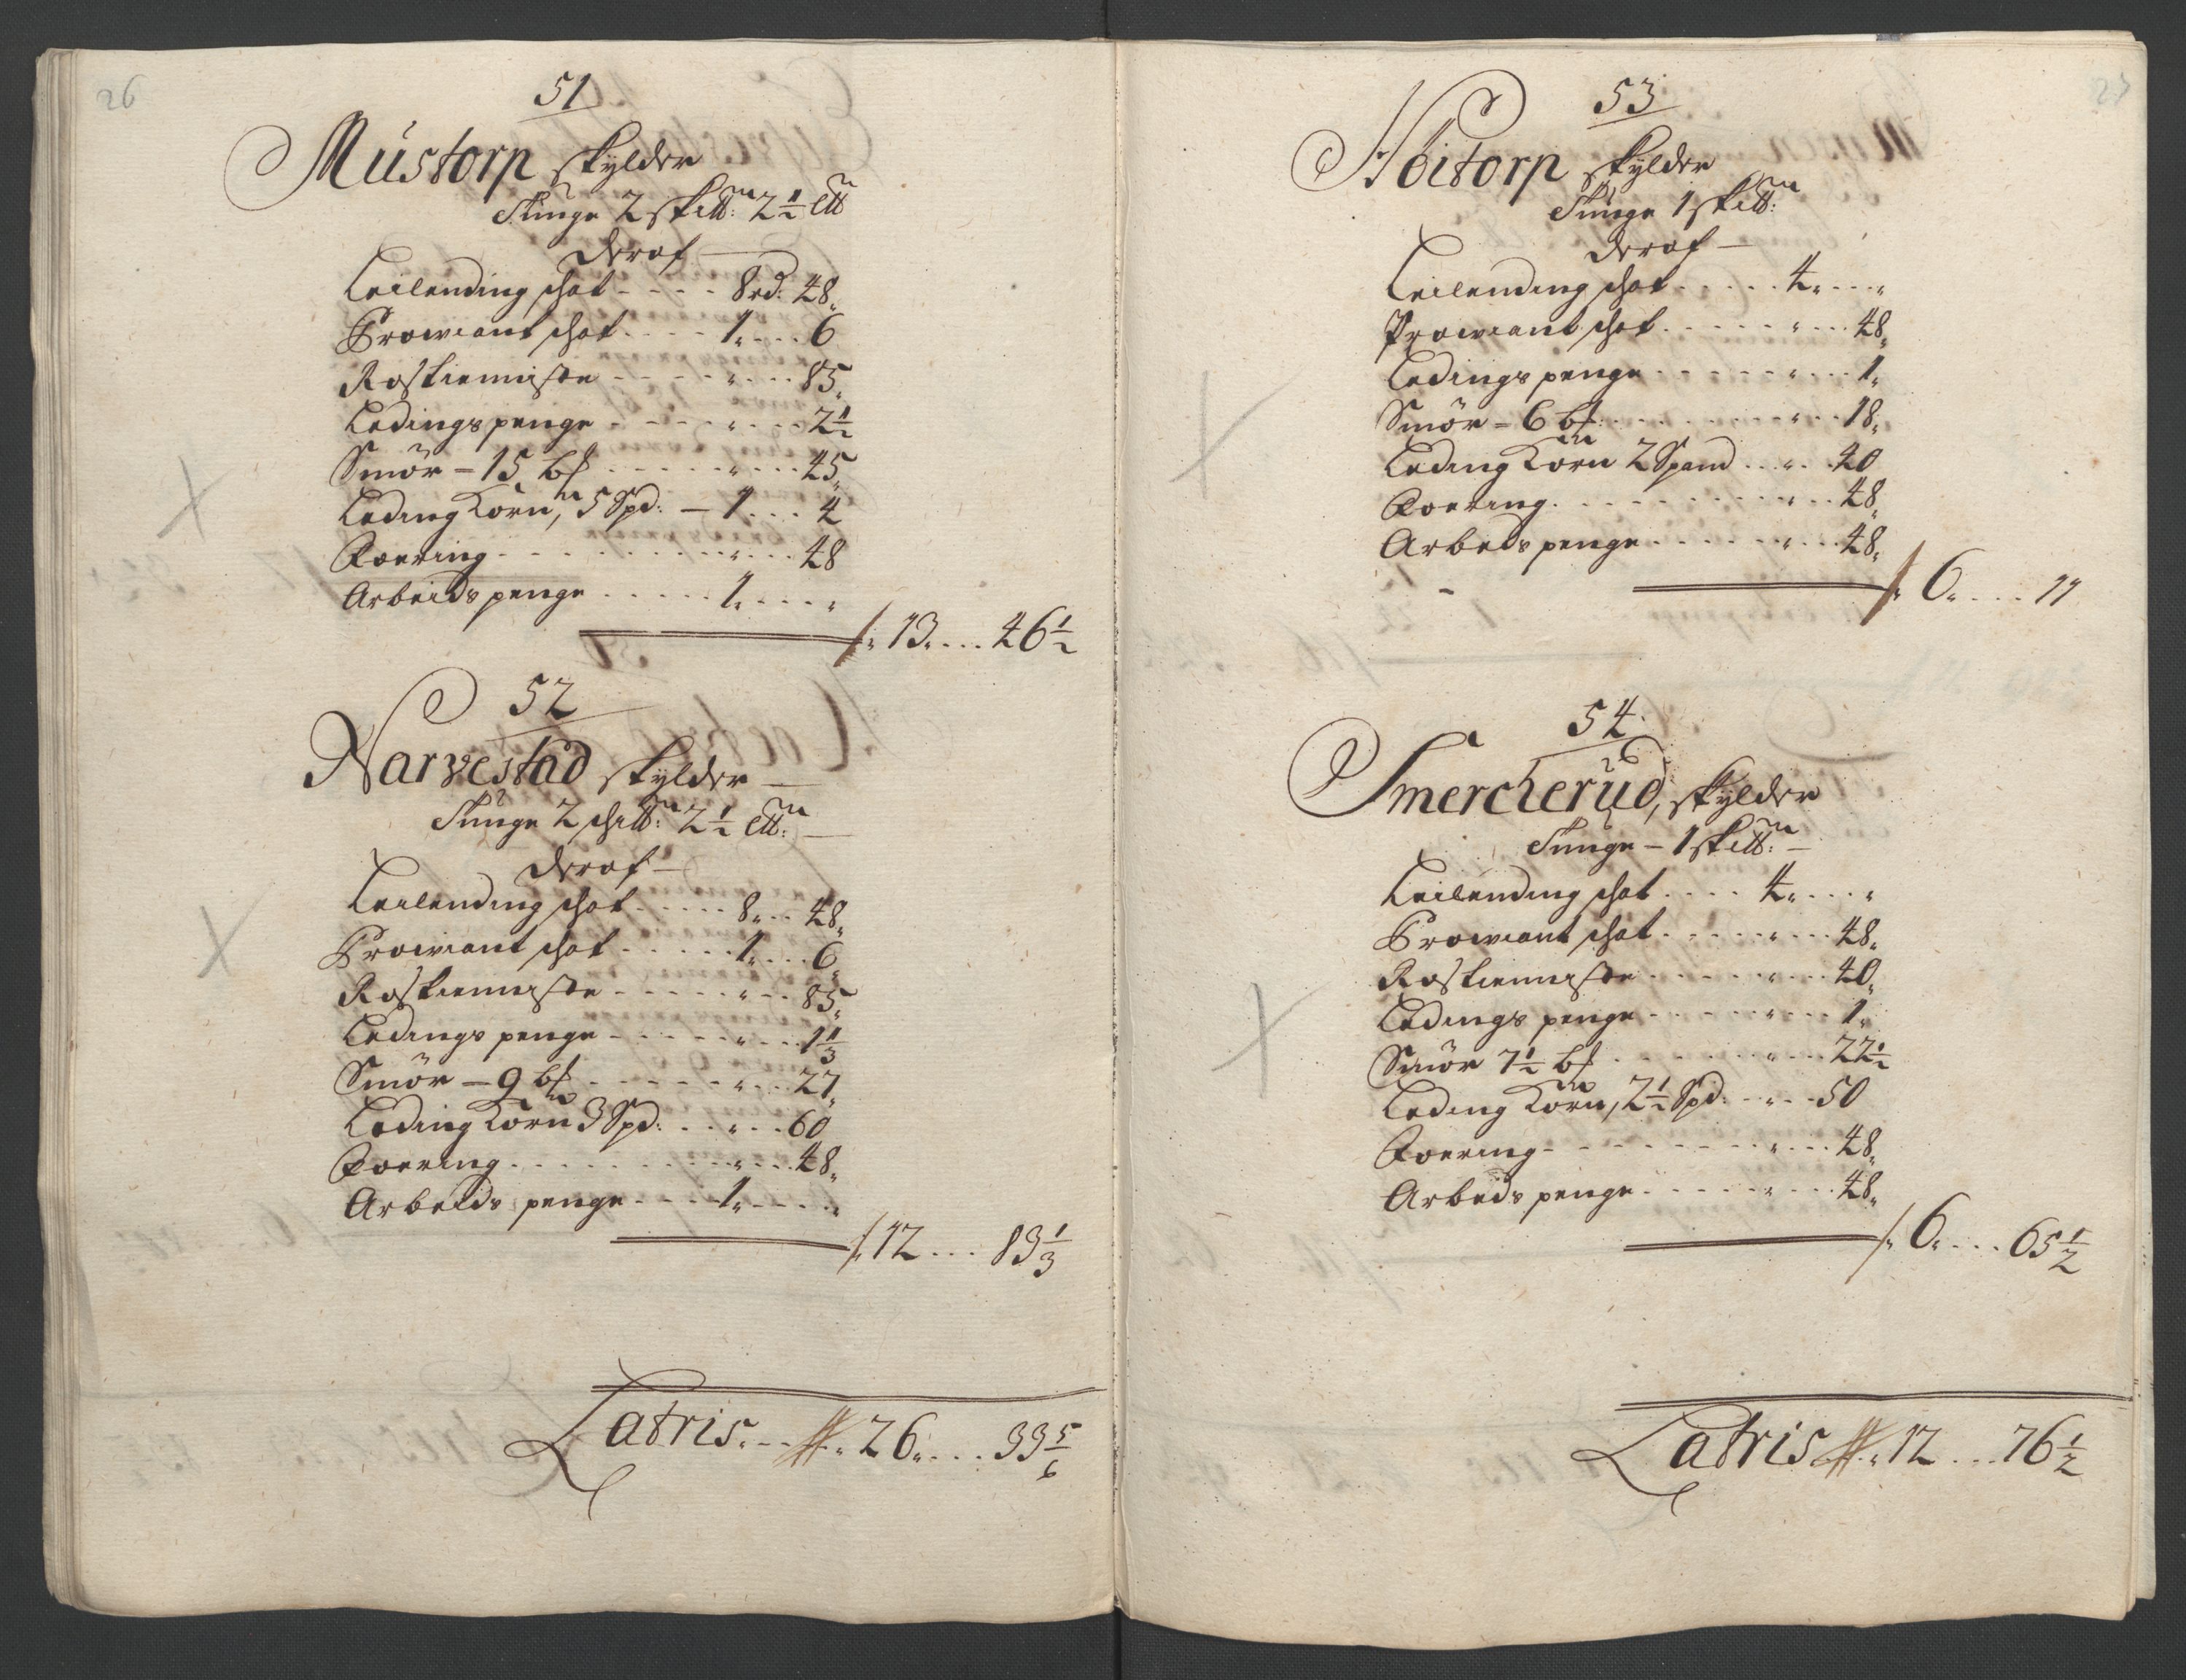 26
51
Mustorp skylder
Tunge 2 skttn: 2½ lttn
deraf
Leilending skat - - - - 8rd: 48
Prowiant skat - - - - 1 - - - 6
Rostienniste - - - - " - - - 85
Ledings penge - - - - " - - - 2½
Smör - 15 bf - - - - - " - - - 45
Leding Korn, 5 Spd: - 1 - - - 4
Foering - - - - - - - " - - - 48
Arbeids penge - - - - - 1 - - - "
13 - - - 46½
52
Narvestad skylder
Tunge 2 schttn: 2½ lttn:
deraf
Leilending skat - - - - - 8 - - 48
Prowiant skat - - - - - 1 - - - 6
Rostienniste - - - - - " - - 85
Ledings penge - - - - - " - - - 1⅓
Smör - 9 bf - - - - - " - - - 27
Leding Korn 3 Spd: - - " - - - 60
Foering - - - - - - - - " - - - 48
Arbeids penge - - - - 1 - - - "
12 - - - 83⅓
Latris - - - 26 - - - 33⅚
53
Höitorp skylder
Tunge 1 skttn:
deraf
Leilending skat - - - - - 4 - - - "
Prowiant skat - - - - - " - - - 48
Ledings penge - - - - - " - - - 1
Smör - 6 bf - - - - - - " - - - 18
Leding Korn 2 Spand - - " - - 40
Foering - - - - - - - - " - - - 48
Arbeds penge - - - - - " - - - 48
6 - - - 11
54
Smercherud, skylder
Tunge - 1 skttn:
Leilending skat - - - - 4 - - - "
Prowiant skat - - - - - " - - - 48
Rostienniste - - - - - " - - - 40
Ledings penge - - - - - " - - - 1
Smör 7½ bf - - - - - - " - - - 22½
Leding Korn, 2½ Spd: - - " - - 50
Foering - - - - - - - - " - - - 48
Arbeds penge - - - - - " - - - 48
6 - - - 65½
Latris 12 - - - 76½